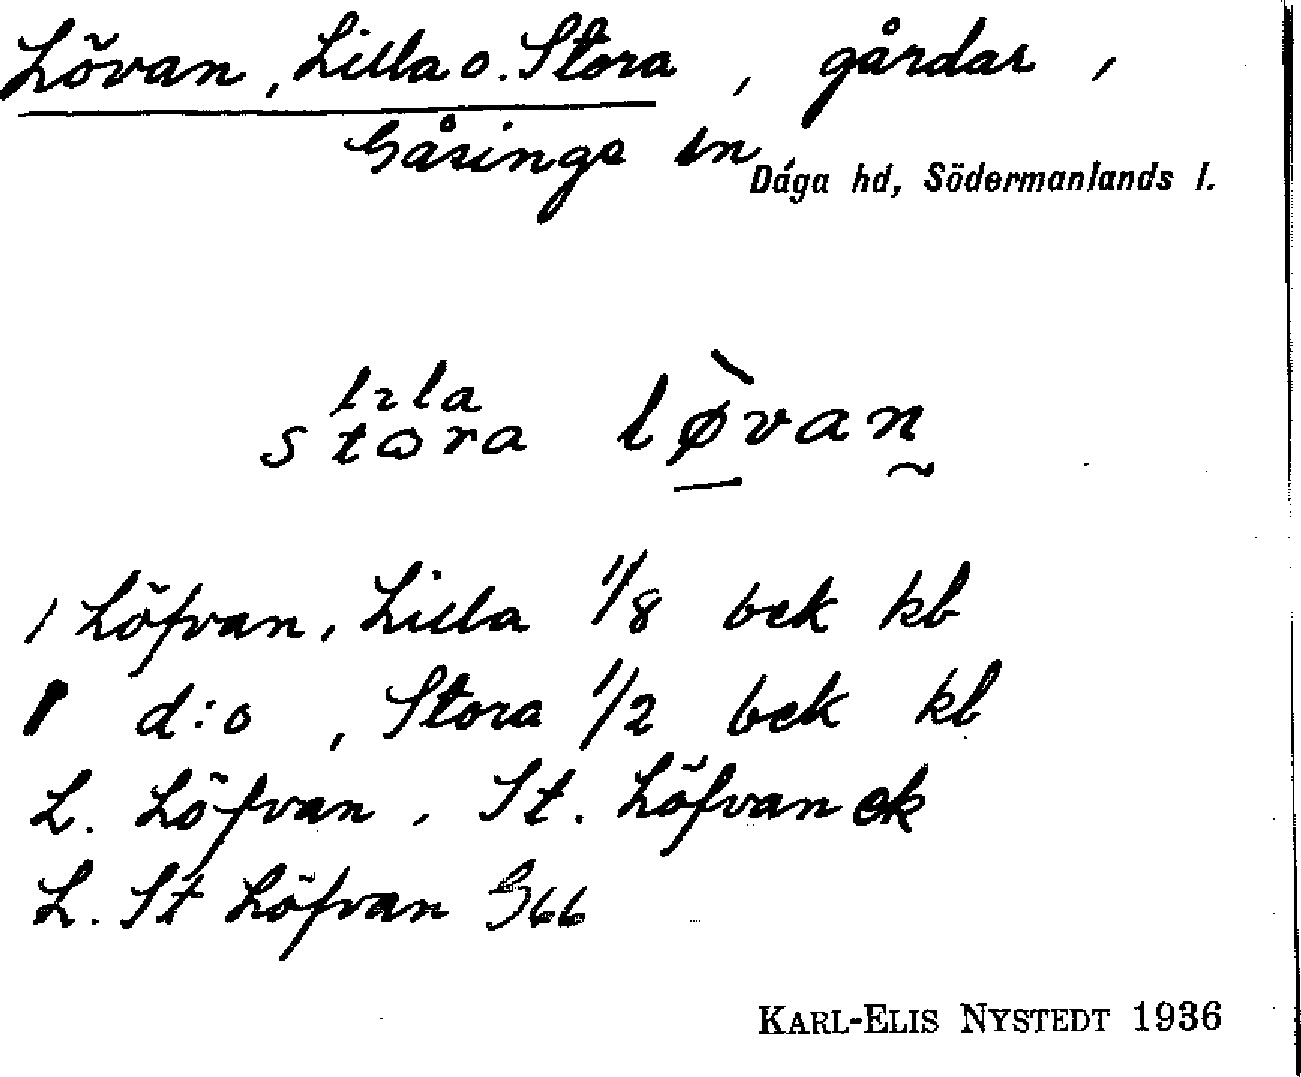 Lövan, Lilla o. Stora, gårdar,
Gåsinge sn, Dåga hd, Södermanlands l.
lɩla
stɷra lø̀van
1 Löfvan, Lilla 1/8 bek kb
1 d:o, Stora 1/2 bek kb
L. Löfvan. St. Löfvan ek
L. St Löfvan G66
KARL-ELIS NYSTEDT 1936